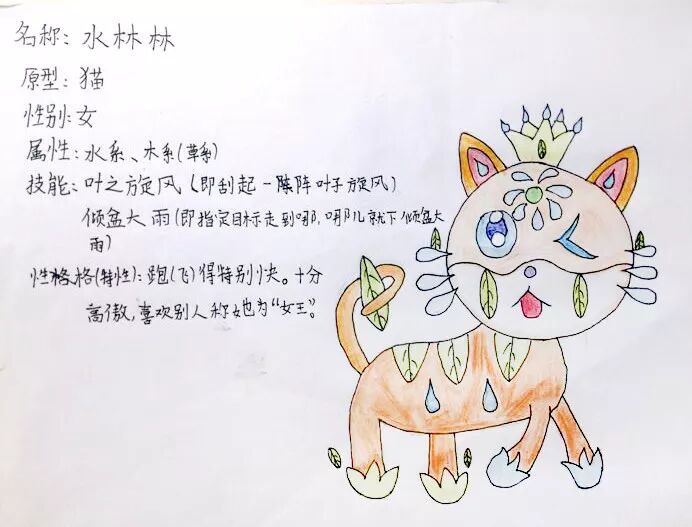 名称：水林林
原型：猫
性别：女
属性：水系、木系(草系)
技能：叶之旋风（即刮起一阵阵叶子旋风）
倾盆大雨(即指定目标走到哪，哪儿就下倾盆大
雨)
性格(特性)：跑(飞)得特别快。十分
高傲，喜欢别人称她为“女王”。